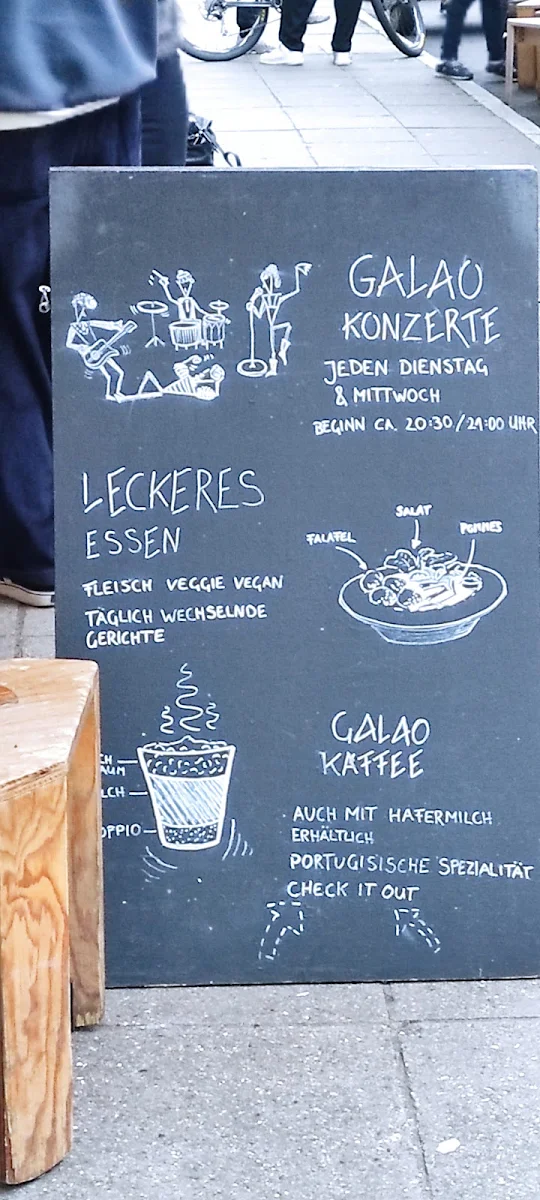 GALAO
KONZERTE
JEDEN DIENSTAG
& MITTWOCH
BEGINN CA. 20:30/21:00 UHR
LECKERES
ESSEN
FLEISCH VEGGIE VEGAN
TÄGLICH WECHSELNDE
GERICHTE
FALAFEL
SALAT
POMMES
CH
AUM
LCH
OPPIO
GALAO
KAFFEE
AUCH MIT HAFERMILCH
ERHÄLTLICH
PORTUGISISCHE SPEZIALITÄT
CHECK IT OUT